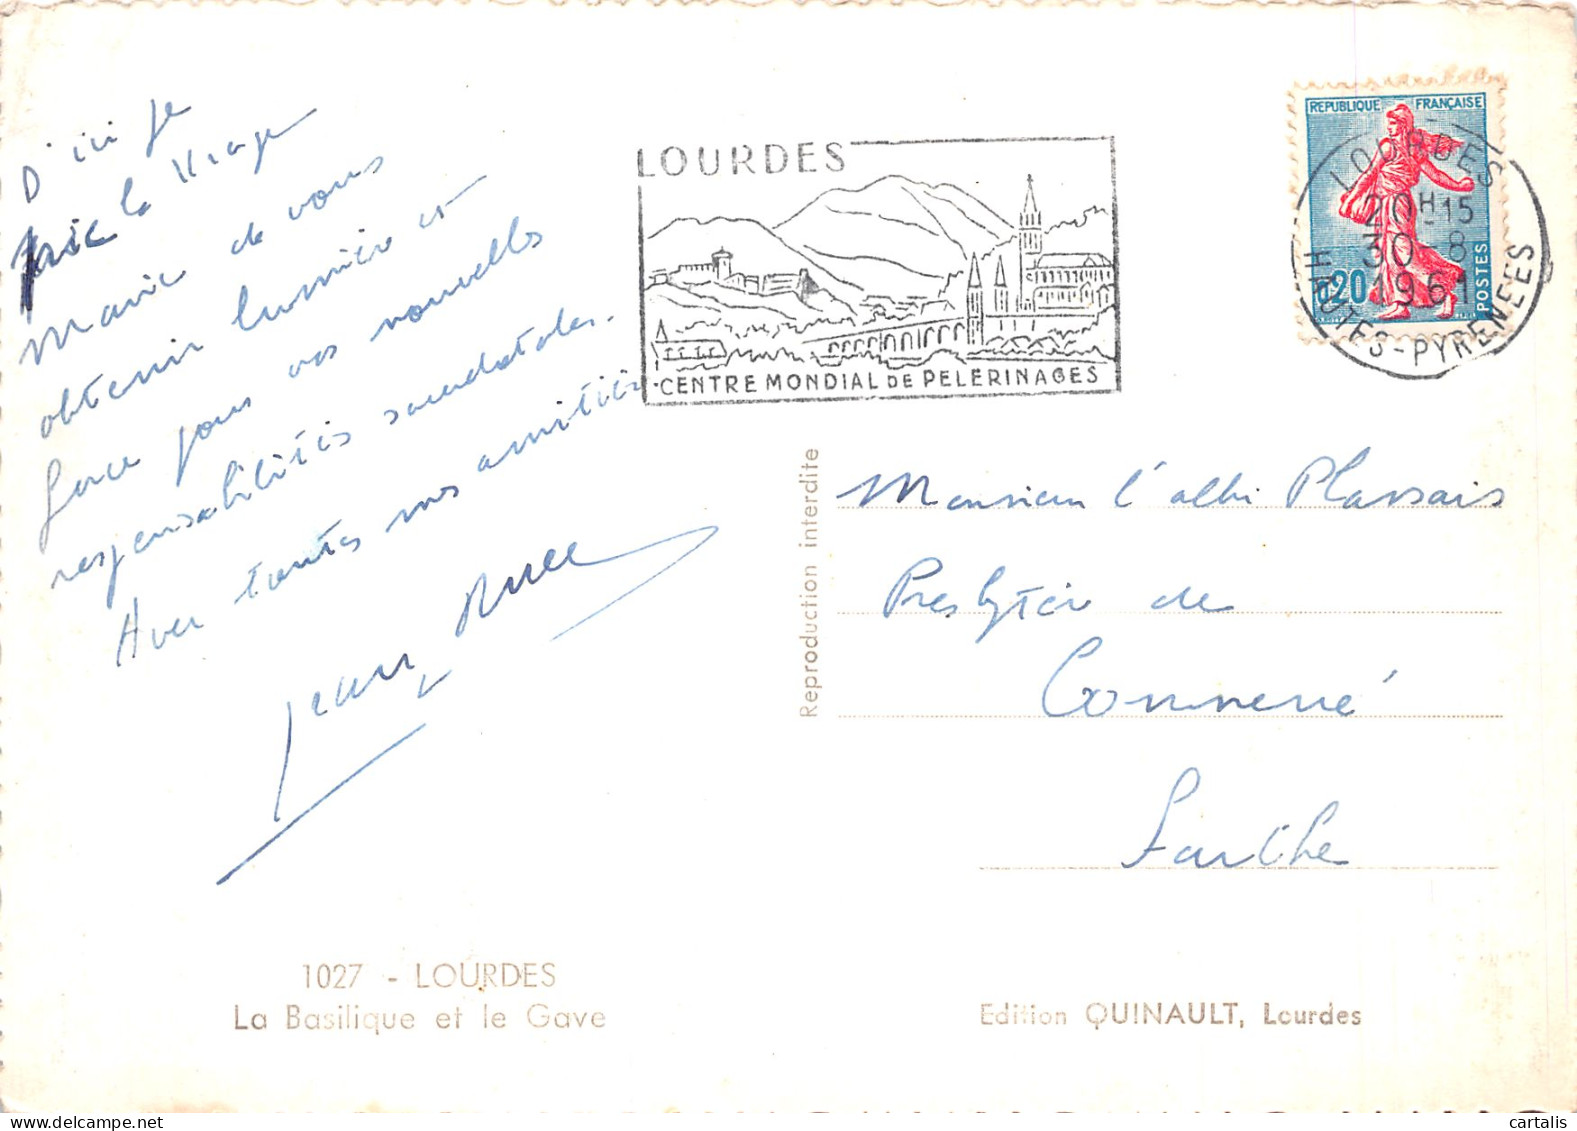 D'ici je
prie la Vierge
Marie de vous
obtenir lumière et
force pour vos nouvelles
responsabilités sacerdotales.
Avec toutes mes amitiés
Jean
LOURDES
CENTRE MONDIAL DE PELERINAGES
REPUBLIQUE FRANÇAISE
0,20
POSTES
LOURDES
20H15
30-8
1961
HAUTES-PYRENEES
Monsieur l'abbé Plassais
Presbytère de
Connerré
Sarthe
Reproduction interdite
1027 - LOURDES
La Basilique et le Gave
Edition QUINAULT, Lourdes
cartalis